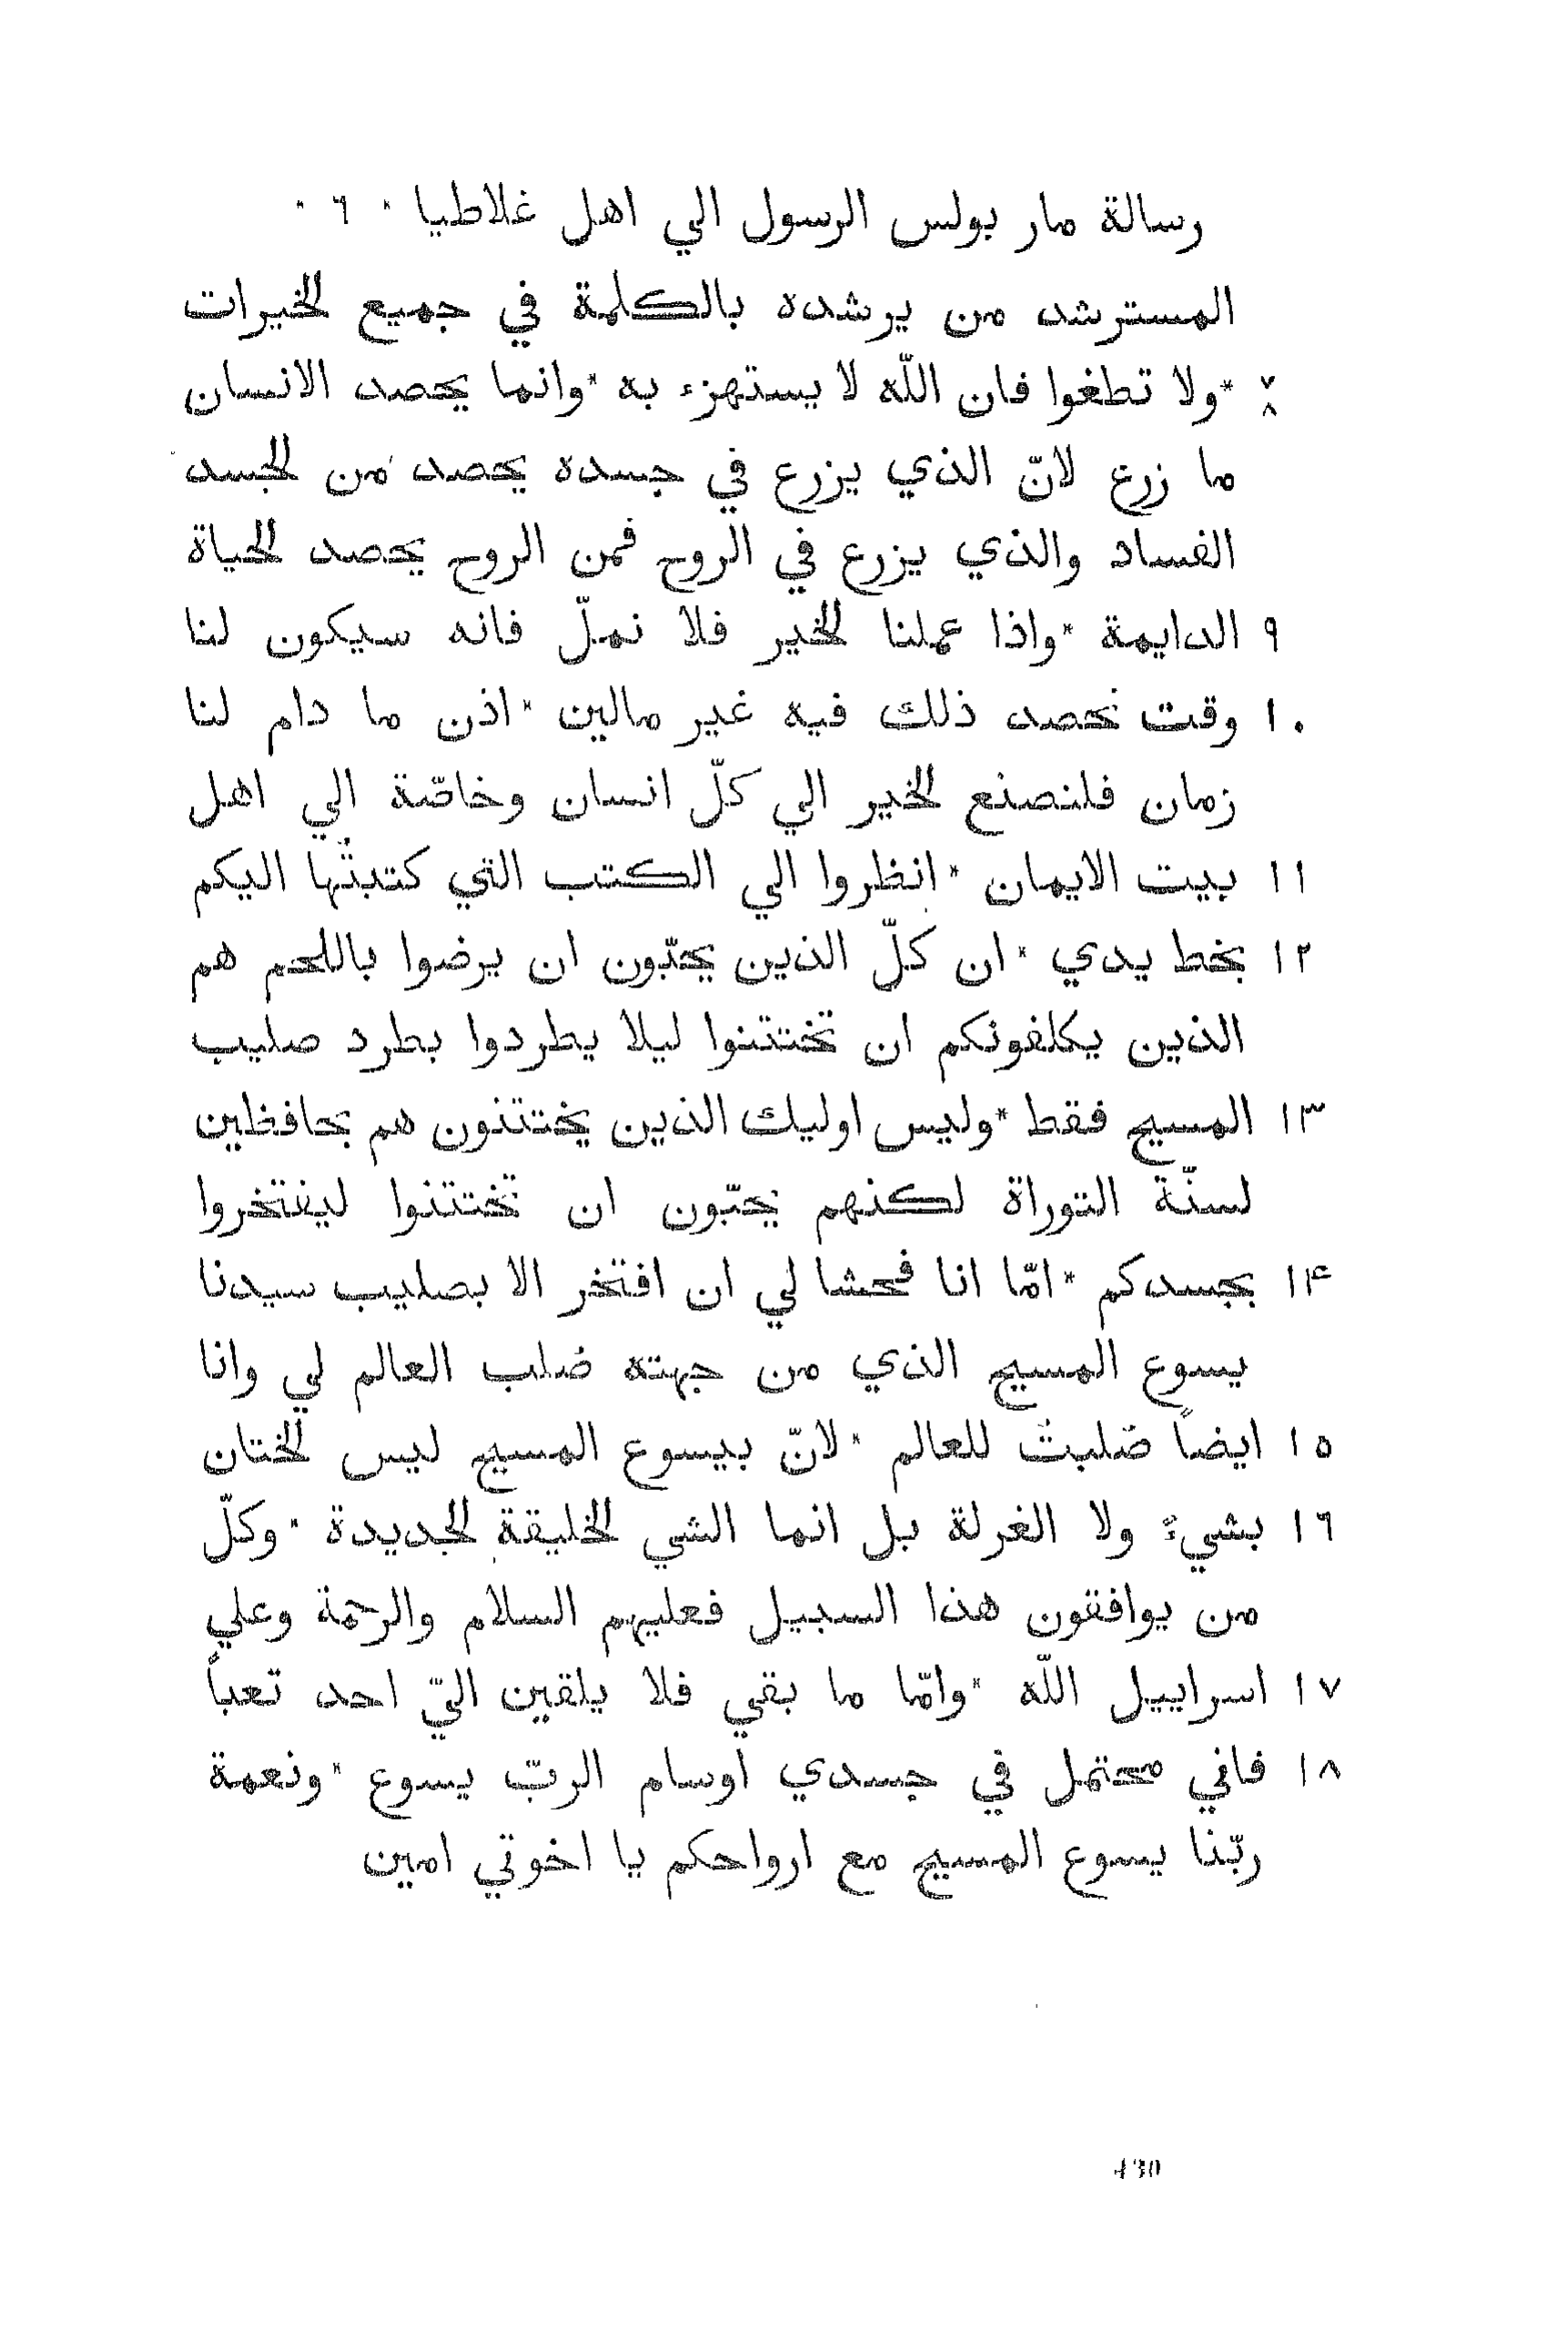 رسالة مار بولس الرسول الي اهل غلاطيا * ٦ *
المسترشد من يرشده بالكلمة في جميع الخيرات
٧ ٨ *ولا تطغوا فان اللّه لا يستهزء به *وانما يحصد الانسان
ما زرع لانّ الذي يزرع في جسده يحصد من الجسد
الفساد والذي يزرع في الروح فمن الروح يحصد الحياة
٩ الدايمة *واذا عملنا الخير فلا نملّ فانه سيكون لنا
١٠ وقت نحصد ذلك فيه غير مالين *اذن ما دام لنا
زمان فلنصنع الخير الي كلّ انسان وخاصّة الي اهل
١١ بيت الايمان *انظروا الي الكتب التي كتبتُها اليكم
١٢ بخط يدي *ان كلّ الذين يحبّون ان يرضوا باللحم هم
الذين يكلفونكم ان تختتنوا ليلا يطردوا بطرد صليب
١٣ المسيح فقط *وليس اوليك الذين يختتنون هم بحافظين
لسنّة التوراة لكنهم يحبّون ان تختتنوا ليفتخروا
١۴ بجسدكم *امّا انا فحشا لي ان افتخر الا بصليب سيدنا
يسوع المسيح الذي من جهته صُلب العالم لي وانا
١٥ ايضاً صُلبتُ للعالم *لانّ بيسوع المسيح ليس الختان
١٦ بشيءٍ ولا الغرلة بل انما الشي الخليقة الجديدة *وكلّ
من يوافقون هذا السبيل فعليهم السلام والرحمة وعلي
١٧ اسراييل اللّه *وامّا ما بقي فلا يلقين اليّ احد تعباً
١٨ فاني محتمل في جسدي اوسام الربّ يسوع *ونعمة
ربّنا يسوع المسيح مع ارواحكم يا اخوتي امين